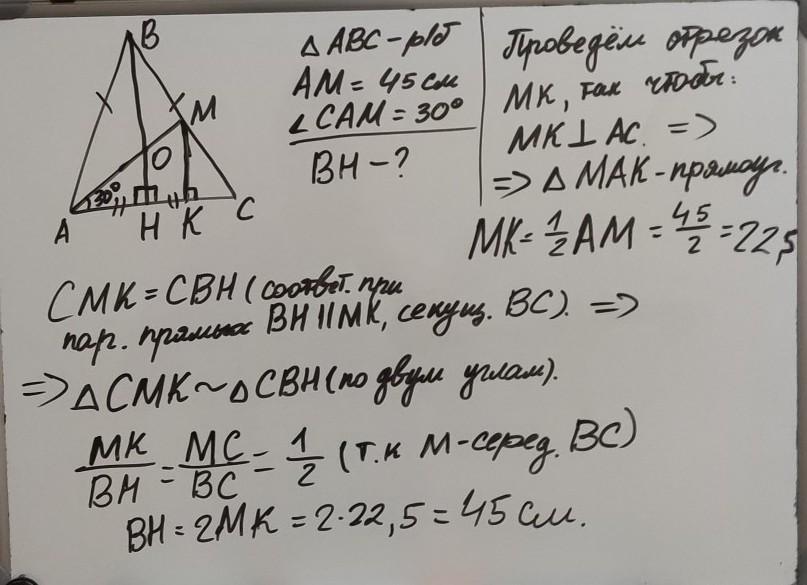 B
M
O
30°
A
H
K
C
△ABC-р/б
AM=45см
∠CAM=30°
BH-?
Проведём отрезок
MK, так чтобы:
MK⊥AC. =>
=> △MAK-прямоуг.
MK=1/2AM=45/2=22,5
CMK=CBH(соответ. при
пар. прямых BH||MK, секущ. BC). =>
=> △CMK~△CBH(по двум углам).
MK/BH=MC/BC=1/2 (т.к M-серед. BC)
BH=2MK=2·22,5=45см.